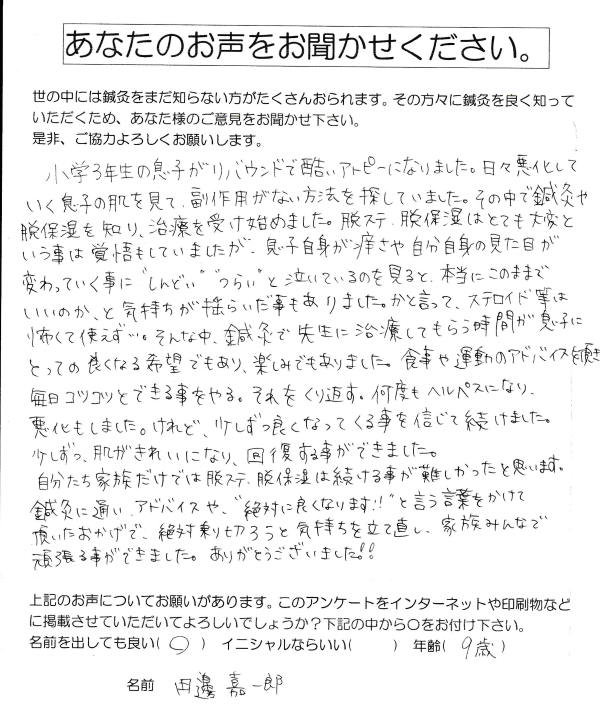 あなたのお声をお聞かせください。
世の中には鍼灸をまだ知らない方がたくさんおられます。その方々に鍼灸を良く知って
いただくため、あなた様のご意見をお聞かせ下さい。
是非、ご協力よろしくお願いします。
小学3年生の息子がリバウンドで酷いアトピーになりました。日々悪化して
いく息子の肌を見て、副作用がない方法を探していました。その中で鍼灸や
脱保湿を知り、治療を受け始めました。脱ステ、脱保湿はとても大変と
いう事は覚悟もしていましたが、息子自身が痒さや自分自身の見た目が
変わっていく事に"しんどい""つらい"と泣いているのを見ると、本当にこのままで
いいのか、と気持ちが揺らいだ事もありました。かと言って、ステロイド等は
怖くて使えず…。そんな中、鍼灸で先生に治療してもらう時間が息子に
とっての良くなる希望でもあり、楽しみでもありました。食事や運動のアドバイスを頂き
毎日コツコツとできる事をやる。それをくり返す。何度もヘルペスになり、
悪化もしました。けれど、少しずつ良くなってくる事を信じて続けました。
少しずつ、肌がきれいになり、回復する事ができました。
自分たち家族だけでは脱ステ、脱保湿は続ける事が難しかったと思います。
鍼灸に通い、アドバイスや、"絶対に良くなります!!"と言う言葉をかけて
頂いたおかげで、絶対乗り切ろうと気持ちを立て直し、家族みんなで
頑張る事ができました。ありがとうございました!!
上記のお声についてお願いがあります。このアンケートをインターネットや印刷物など
に掲載させていただいてよろしいでしょうか?下記の中から○をお付け下さい。
名前を出しても良い(○) イニシャルならいい( ) 年齢(9歳)
名前 田邊 嘉一郎